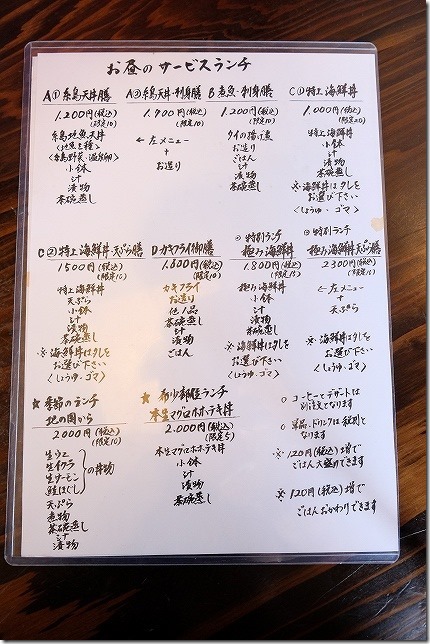 お昼のサービスランチ
A① 糸島天丼膳
1,200円(税込)
(限定10)
糸島地魚天丼
(地魚2種)
(糸島野菜・温泉卵)
小鉢
汁
漬物
茶碗蒸し
A② 糸島天丼・刺身膳
1,900円(税込)
(限定10)
← 左メニュー
+
お造り
B 煮魚・刺身膳
1,200円(税込)
(限定10)
タイの揚げ煮
お造り
ごはん
汁
漬物
茶碗蒸し
C① 特上海鮮丼
1,000円(税込)
(限定20)
特上海鮮丼
小鉢
汁
漬物
茶碗蒸し
※海鮮丼はタレを
お選び下さい
<しょうゆ・ゴマ>
C② 特上海鮮丼 天ぷら膳
1500円(税込)
(限定10)
特上海鮮丼
天ぷら
小鉢
汁
漬物
茶碗蒸し
※海鮮丼はタレを
お選び下さい
<しょうゆ・ゴマ>
D カキフライ御膳
1,800円(税込)
(限定10)
カキフライ
お造り
他1品
茶碗蒸し
汁
漬物
ごはん
① 特別ランチ
極み海鮮丼
1,800円(税込)
(限定15)
極み海鮮丼
小鉢
汁
漬物
茶碗蒸し
※海鮮丼はタレを
お選び下さい
<しょうゆ・ゴマ>
② 特別ランチ
極み海鮮丼天ぷら膳
2300円(税込)
(限定10)
← 左メニュー
+
天ぷら
※海鮮丼はタレを
お選び下さい
<しょうゆ・ゴマ>
☆ 季節のランチ
北の国から
2000円(税込)
(限定10)
生ウニ
生イクラ
生サーモン
鮭ほぐし
の丼物
天ぷら
煮物
茶碗蒸し
汁
漬物
☆ 希少部位ランチ
本生マグロホホテキ丼
2,000円(税込)
(限定5)
本生マグロホホテキ丼
小鉢
汁
漬物
茶碗蒸し
○ コーヒーとデザートは
別注文となります
○ 単品、ドリンクは税別と
なります
※120円(税込)増で
ごはん大盛りできます
※120円(税込)増で
ごはんおかわりできます